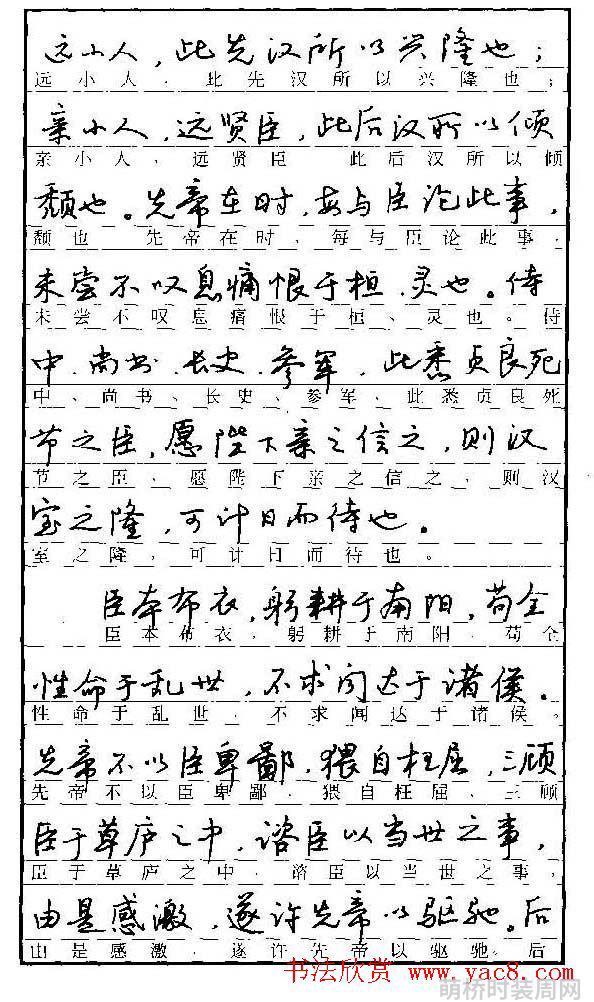 远小人，此先汉所以兴隆也；
远小人，此先汉所以兴隆也；
亲小人，远贤臣，此后汉所以倾
亲小人，远贤臣 此后汉所以倾
颓也。先帝在时，每与臣论此事，
颓也 先帝在时，每与臣论此事，
未尝不叹息痛恨于桓、灵也。侍
未尝不叹息痛恨于桓、灵也。侍
中、尚书、长史、参军，此悉贞良死
中、尚书、长史、参军、此悉贞良死
节之臣，愿陛下亲之信之，则汉
节之臣，愿陛下亲之信之，则汉
室之隆，可计日而待也。
室之隆，可计日而待也。
臣本布衣，躬耕于南阳，苟全
臣本布衣，躬耕于南阳，苟全
性命于乱世，不求闻达于诸侯。
性命于乱世，不求闻达于诸侯。
先帝不以臣卑鄙，猥自枉屈，三顾
先帝不以臣卑鄙，猥自枉屈、三顾
臣于草庐之中，谘臣以当世之事，
臣于草庐之中，谘臣以当世之事，
由是感激，遂许先帝以驱驰。后
由是感激，遂许先帝以驱驰。后
书法欣赏 www.yac8.com
萌桥时装周网